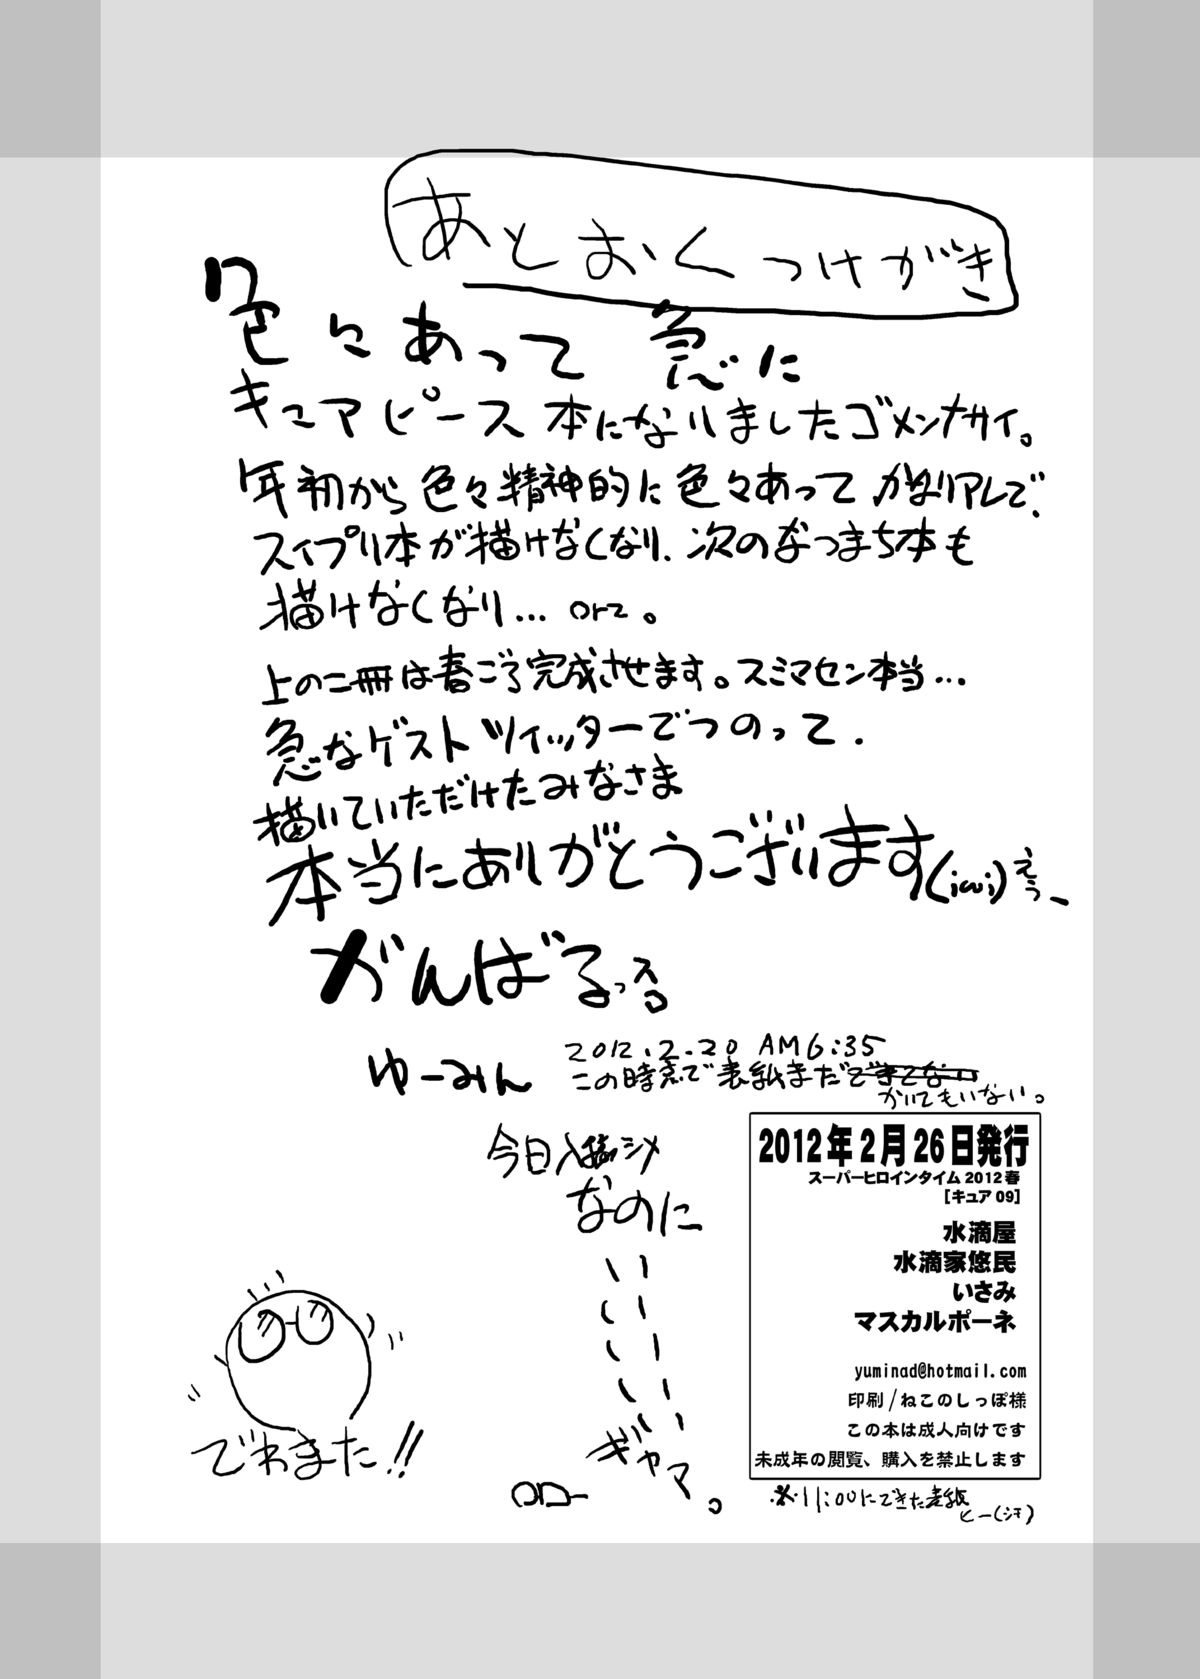 あとおくつけがき
色々あって 急に
キュアピース本になりましたゴメンナサイ。
年初から色々精神的に色々あってかなりアレで、
スイプリ本が描けなくなり、次のなつまち本も
描けなくなり… orz。
上の二冊は春ごろ完成させます。スミマセン本当…
急なゲストツイッターでつのって、
描いていただけたみなさま
本当にありがとうございます(;ω;)えぅー
がんばるっス。
ゆーみん
2012.2.20 AM6:35
この時点で表紙まだできてない
かいてもいない。
今日入稿シメ
なのに
いいいいい
ギャマ。
でわまた!!
2012年2月26日発行
スーパーヒロインタイム2012春
[キュア09]
水滴屋
水滴家悠民
いさみ
マスカルポーネ
yuminad@hotmail.com
印刷/ねこのしっぽ様
この本は成人向けです
未成年の閲覧、購入を禁止します
※11:00にできた表紙
ヒー(シモ)